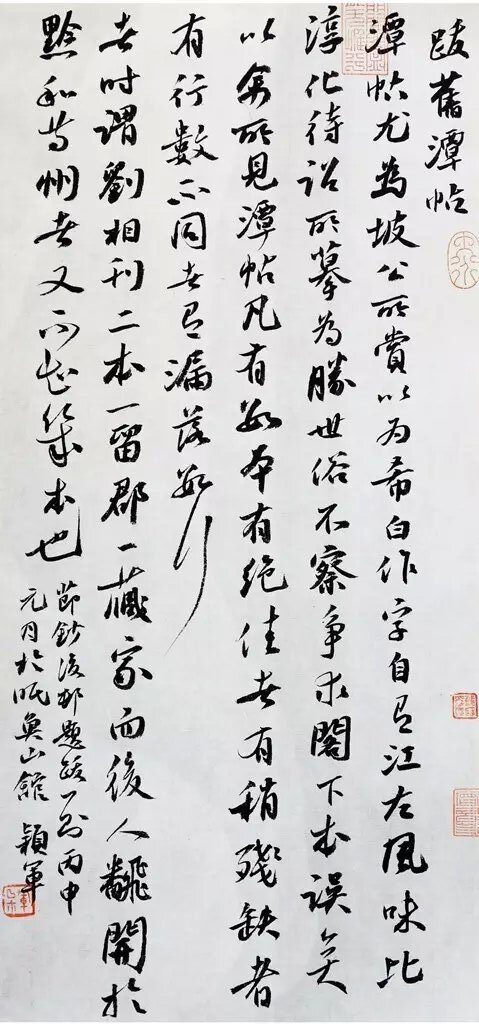 跋舊潭帖
潭帖尤為坡公所賞以为希白作字自有江左風味比
淳化待詔所摹為勝世俗不察爭求閣下本误矣
以余所見潭帖凡有數本有絕佳者有稍殘缺者
有行數不同者有漏落數行
者时謂劉相刊二本一留郡一藏家而後人飜開於
黔和等州者又不知幾本也
節鈔後邨題跋一則丙申
元月於眠魚山館 穎軍